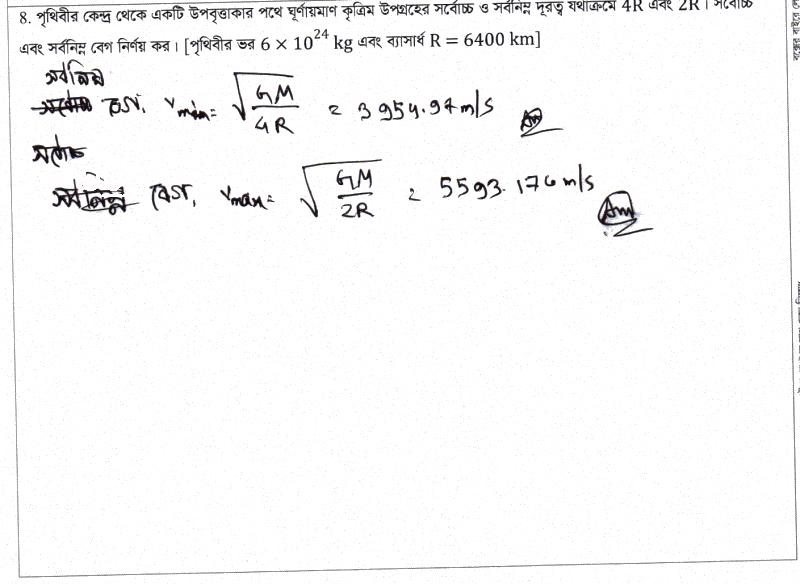 8. পৃথিবীর কেন্দ্র থেকে একটি উপবৃত্তাকার পথে ঘূর্ণায়মাণ কৃত্রিম উপগ্রহের সর্বোচ্চ ও সর্বনিম্ন দূরত্ব যথাক্রমে 4R এবং 2R। সর্বোচ্চ
এবং সর্বনিম্ন বেগ নির্ণয় কর। [পৃথিবীর ভর 6 × 10^24 kg এবং ব্যাসার্ধ R = 6400 km]
সর্বনিম্ন
বেগ, v_min = √(GM/4R) = 3954.97 m/s Ans
সর্বোচ্চ
বেগ, v_max = √(GM/2R) = 5593.176 m/s Ans